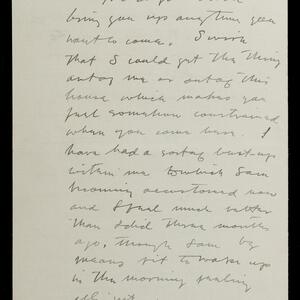 bring you up any time you
want to come. I wish
that I could get the thing
out of me or out of this
house which makes you
feel somehow constrained
when you come here. I
have had a sort of bust-up
within me to which I am
becoming accustomed now
and I feel much better
than I did three months
ago, though I am by
means fit to wake up
in the morning feeling